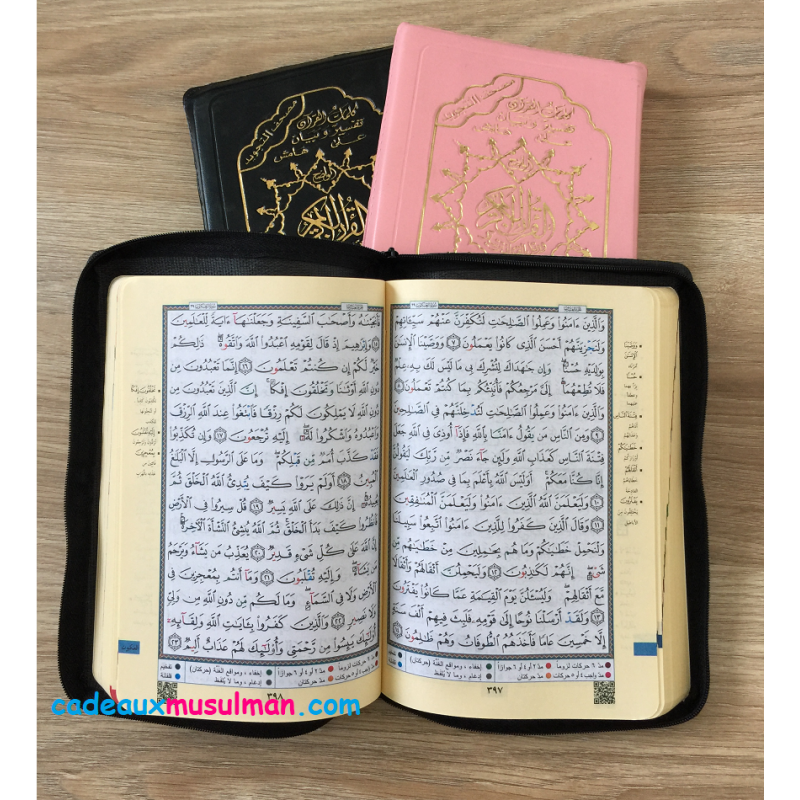 كلمات القرآن
تفسير وبيان
على هامش
مصحف التجويد
القرآن الكريم
كلمات القرآن
تفسير وبيان
مصحف التجويد
القرآن الكريم
وَالَّذِينَ ءَامَنُوا وَعَمِلُوا الصَّٰلِحَٰتِ لَنُكَفِّرَنَّ عَنْهُمْ سَيِّـَٔاتِهِمْ
وَلَنَجْزِيَنَّهُمْ أَحْسَنَ الَّذِي كَانُوا يَعْمَلُونَ ٧ وَوَصَّيْنَا الْإِنسَٰنَ
بِوَٰلِدَيْهِ حُسْنًا وَإِن جَٰهَدَاكَ لِتُشْرِكَ بِي مَا لَيْسَ لَكَ بِهِ عِلْمٌ
فَلَا تُطِعْهُمَا إِلَيَّ مَرْجِعُكُمْ فَأُنَبِّئُكُم بِمَا كُنتُمْ تَعْمَلُونَ ٨
وَالَّذِينَ ءَامَنُوا وَعَمِلُوا الصَّٰلِحَٰتِ لَنُدْخِلَنَّهُمْ فِي الصَّٰلِحِينَ
٩ وَمِنَ النَّاسِ مَن يَقُولُ ءَامَنَّا بِاللَّهِ فَإِذَا أُوذِيَ فِي اللَّهِ جَعَلَ
فِتْنَةَ النَّاسِ كَعَذَابِ اللَّهِ وَلَئِن جَاءَ نَصْرٌ مِّن رَّبِّكَ لَيَقُولُنَّ
إِنَّا كُنَّا مَعَكُمْ أَوَلَيْسَ اللَّهُ بِأَعْلَمَ بِمَا فِي صُدُورِ الْعَٰلَمِينَ
١٠ وَلَيَعْلَمَنَّ اللَّهُ الَّذِينَ ءَامَنُوا وَلَيَعْلَمَنَّ الْمُنَٰفِقِينَ
١١ وَقَالَ الَّذِينَ كَفَرُوا لِلَّذِينَ ءَامَنُوا اتَّبِعُوا سَبِيلَنَا
وَلْنَحْمِلْ خَطَٰيَٰكُمْ وَمَا هُم بِحَٰمِلِينَ مِنْ خَطَٰيَٰهُم مِّن
شَيْءٍ إِنَّهُمْ لَكَٰذِبُونَ ١٢ وَلَيَحْمِلُنَّ أَثْقَالَهُمْ وَأَثْقَالًا
مَّعَ أَثْقَالِهِمْ وَلَيُسْـَٔلُنَّ يَوْمَ الْقِيَٰمَةِ عَمَّا كَانُوا يَفْتَرُونَ
١٣ وَلَقَدْ أَرْسَلْنَا نُوحًا إِلَىٰ قَوْمِهِ فَلَبِثَ فِيهِمْ أَلْفَ سَنَةٍ
إِلَّا خَمْسِينَ عَامًا فَأَخَذَهُمُ الطُّوفَانُ وَهُمْ ظَٰلِمُونَ ١٤
٣٩٧
فَأَنجَيْنَٰهُ وَأَصْحَٰبَ السَّفِينَةِ وَجَعَلْنَٰهَا ءَايَةً لِّلْعَٰلَمِينَ
١٥ وَإِبْرَٰهِيمَ إِذْ قَالَ لِقَوْمِهِ اعْبُدُوا اللَّهَ وَاتَّقُوهُ ذَٰلِكُمْ
خَيْرٌ لَّكُمْ إِن كُنتُمْ تَعْلَمُونَ ١٦ إِنَّمَا تَعْبُدُونَ مِن
دُونِ اللَّهِ أَوْثَٰنًا وَتَخْلُقُونَ إِفْكًا إِنَّ الَّذِينَ تَعْبُدُونَ مِن
دُونِ اللَّهِ لَا يَمْلِكُونَ لَكُمْ رِزْقًا فَابْتَغُوا عِندَ اللَّهِ الرِّزْقَ
وَاعْبُدُوهُ وَاشْكُرُوا لَهُ إِلَيْهِ تُرْجَعُونَ ١٧ وَإِن تُكَذِّبُوا
فَقَدْ كَذَّبَ أُمَمٌ مِّن قَبْلِكُمْ وَمَا عَلَى الرَّسُولِ إِلَّا الْبَلَٰغُ
الْمُبِينُ ١٨ أَوَلَمْ يَرَوْا كَيْفَ يُبْدِئُ اللَّهُ الْخَلْقَ ثُمَّ
يُعِيدُهُ إِنَّ ذَٰلِكَ عَلَى اللَّهِ يَسِيرٌ ١٩ قُلْ سِيرُوا فِي الْأَرْضِ
فَانظُرُوا كَيْفَ بَدَأَ الْخَلْقَ ثُمَّ اللَّهُ يُنشِئُ النَّشْأَةَ الْءَاخِرَةَ
إِنَّ اللَّهَ عَلَىٰ كُلِّ شَيْءٍ قَدِيرٌ ٢٠ يُعَذِّبُ مَن يَشَاءُ وَيَرْحَمُ
مَن يَشَاءُ وَإِلَيْهِ تُقْلَبُونَ ٢١ وَمَا أَنتُم بِمُعْجِزِينَ فِي
الْأَرْضِ وَلَا فِي السَّمَاءِ وَمَا لَكُم مِّن دُونِ اللَّهِ مِن وَلِيٍّ
وَلَا نَصِيرٍ ٢٢ وَالَّذِينَ كَفَرُوا بِـَٔايَٰتِ اللَّهِ وَلِقَائِهِ
أُولَٰئِكَ يَئِسُوا مِن رَّحْمَتِي وَأُولَٰئِكَ لَهُمْ عَذَابٌ أَلِيمٌ ٢٣
٣٩٨
cadeauxmusulman.com